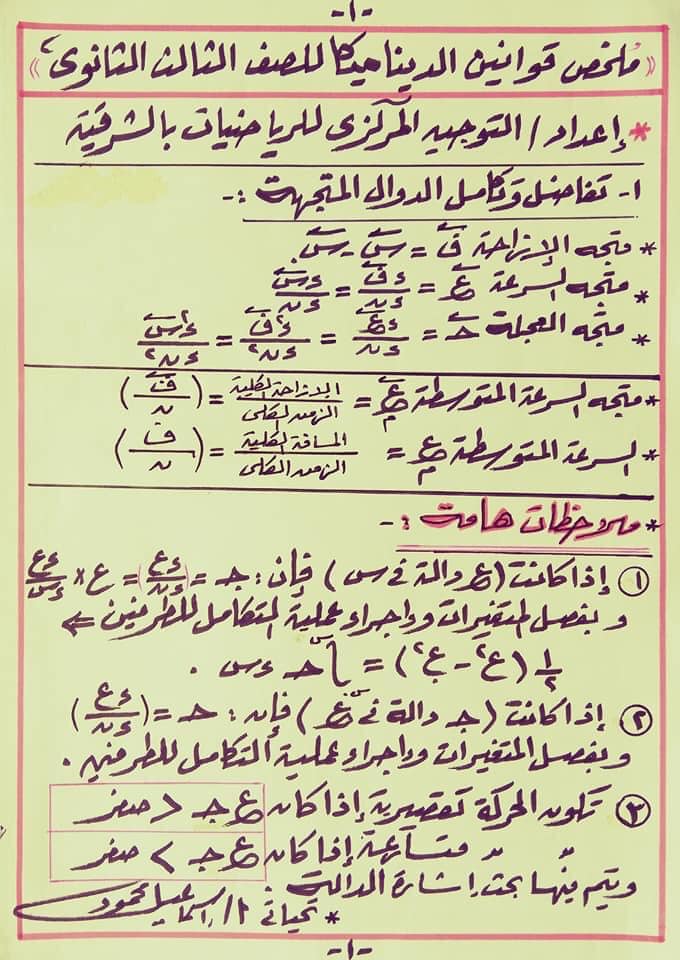 -١-
« ملخص قوانين الديناميكا للصف الثالث الثانوى »
* إعداد / التوجيه المركزى للرياضيات بالشرقية
١- تفاضل وتكامل الدوال المتجهة :-
* متجه الإزاحة ف = س - س.
* متجه السرعة ع = ءف/ءن = ءس/ءن
* متجه العجلة جـ = ءع/ءن = ء٢ف/ءن٢ = ء٢س/ءن٢
* متجه السرعة المتوسطة عم = الإزاحة الكلية/الزمن الكلى = (ف/ن)
* السرعة المتوسطة عم = المسافة الكلية/الزمن الكلى = (ف/ن)
* ملاحظات هامة :-
① إذا كانت (ع دالة فى س) فإن : جـ = (ءع/ءن) = ع × ءع/ءس
وبفصل المتغيرات وإجراء عملية التكامل للطرفين ⇐
١/٢ (ع٢ - ع.٢) = ∫ جـ ءس .
② إذا كانت (جـ دالة فى ع) فإن : جـ = (ءع/ءن)
وبفصل المتغيرات وإجراء عملية التكامل للطرفين .
③ تكون الحركة تقصيرية إذا كان ع جـ > صفر
" " متسارعة إذا كان ع جـ < صفر
ويتم فيها بحث إشارة الدالة .
* تحياتى أ/ إسماعيل محمود
-١-